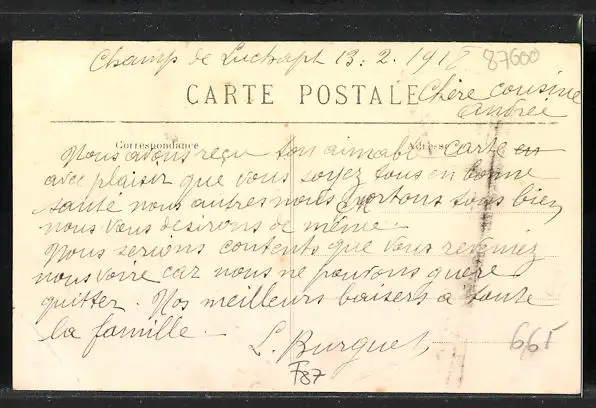 Champ de Luchapt 13. 2. 191
87600
CARTE POSTALE
Chère cousine
Andrée
Correspondance
Adresse
Nous avons reçu ton aimable carte en
avec plaisir que vous soyez tous en bonne
santé nous autres nous portons tous bien,
nous vous desirons de même.
Nous serions contents que vous reveniez
nous voire car nous ne pouvons guère
quitter. Nos meilleurs baisers a toute
la famille.
L. Burguet
665
F87